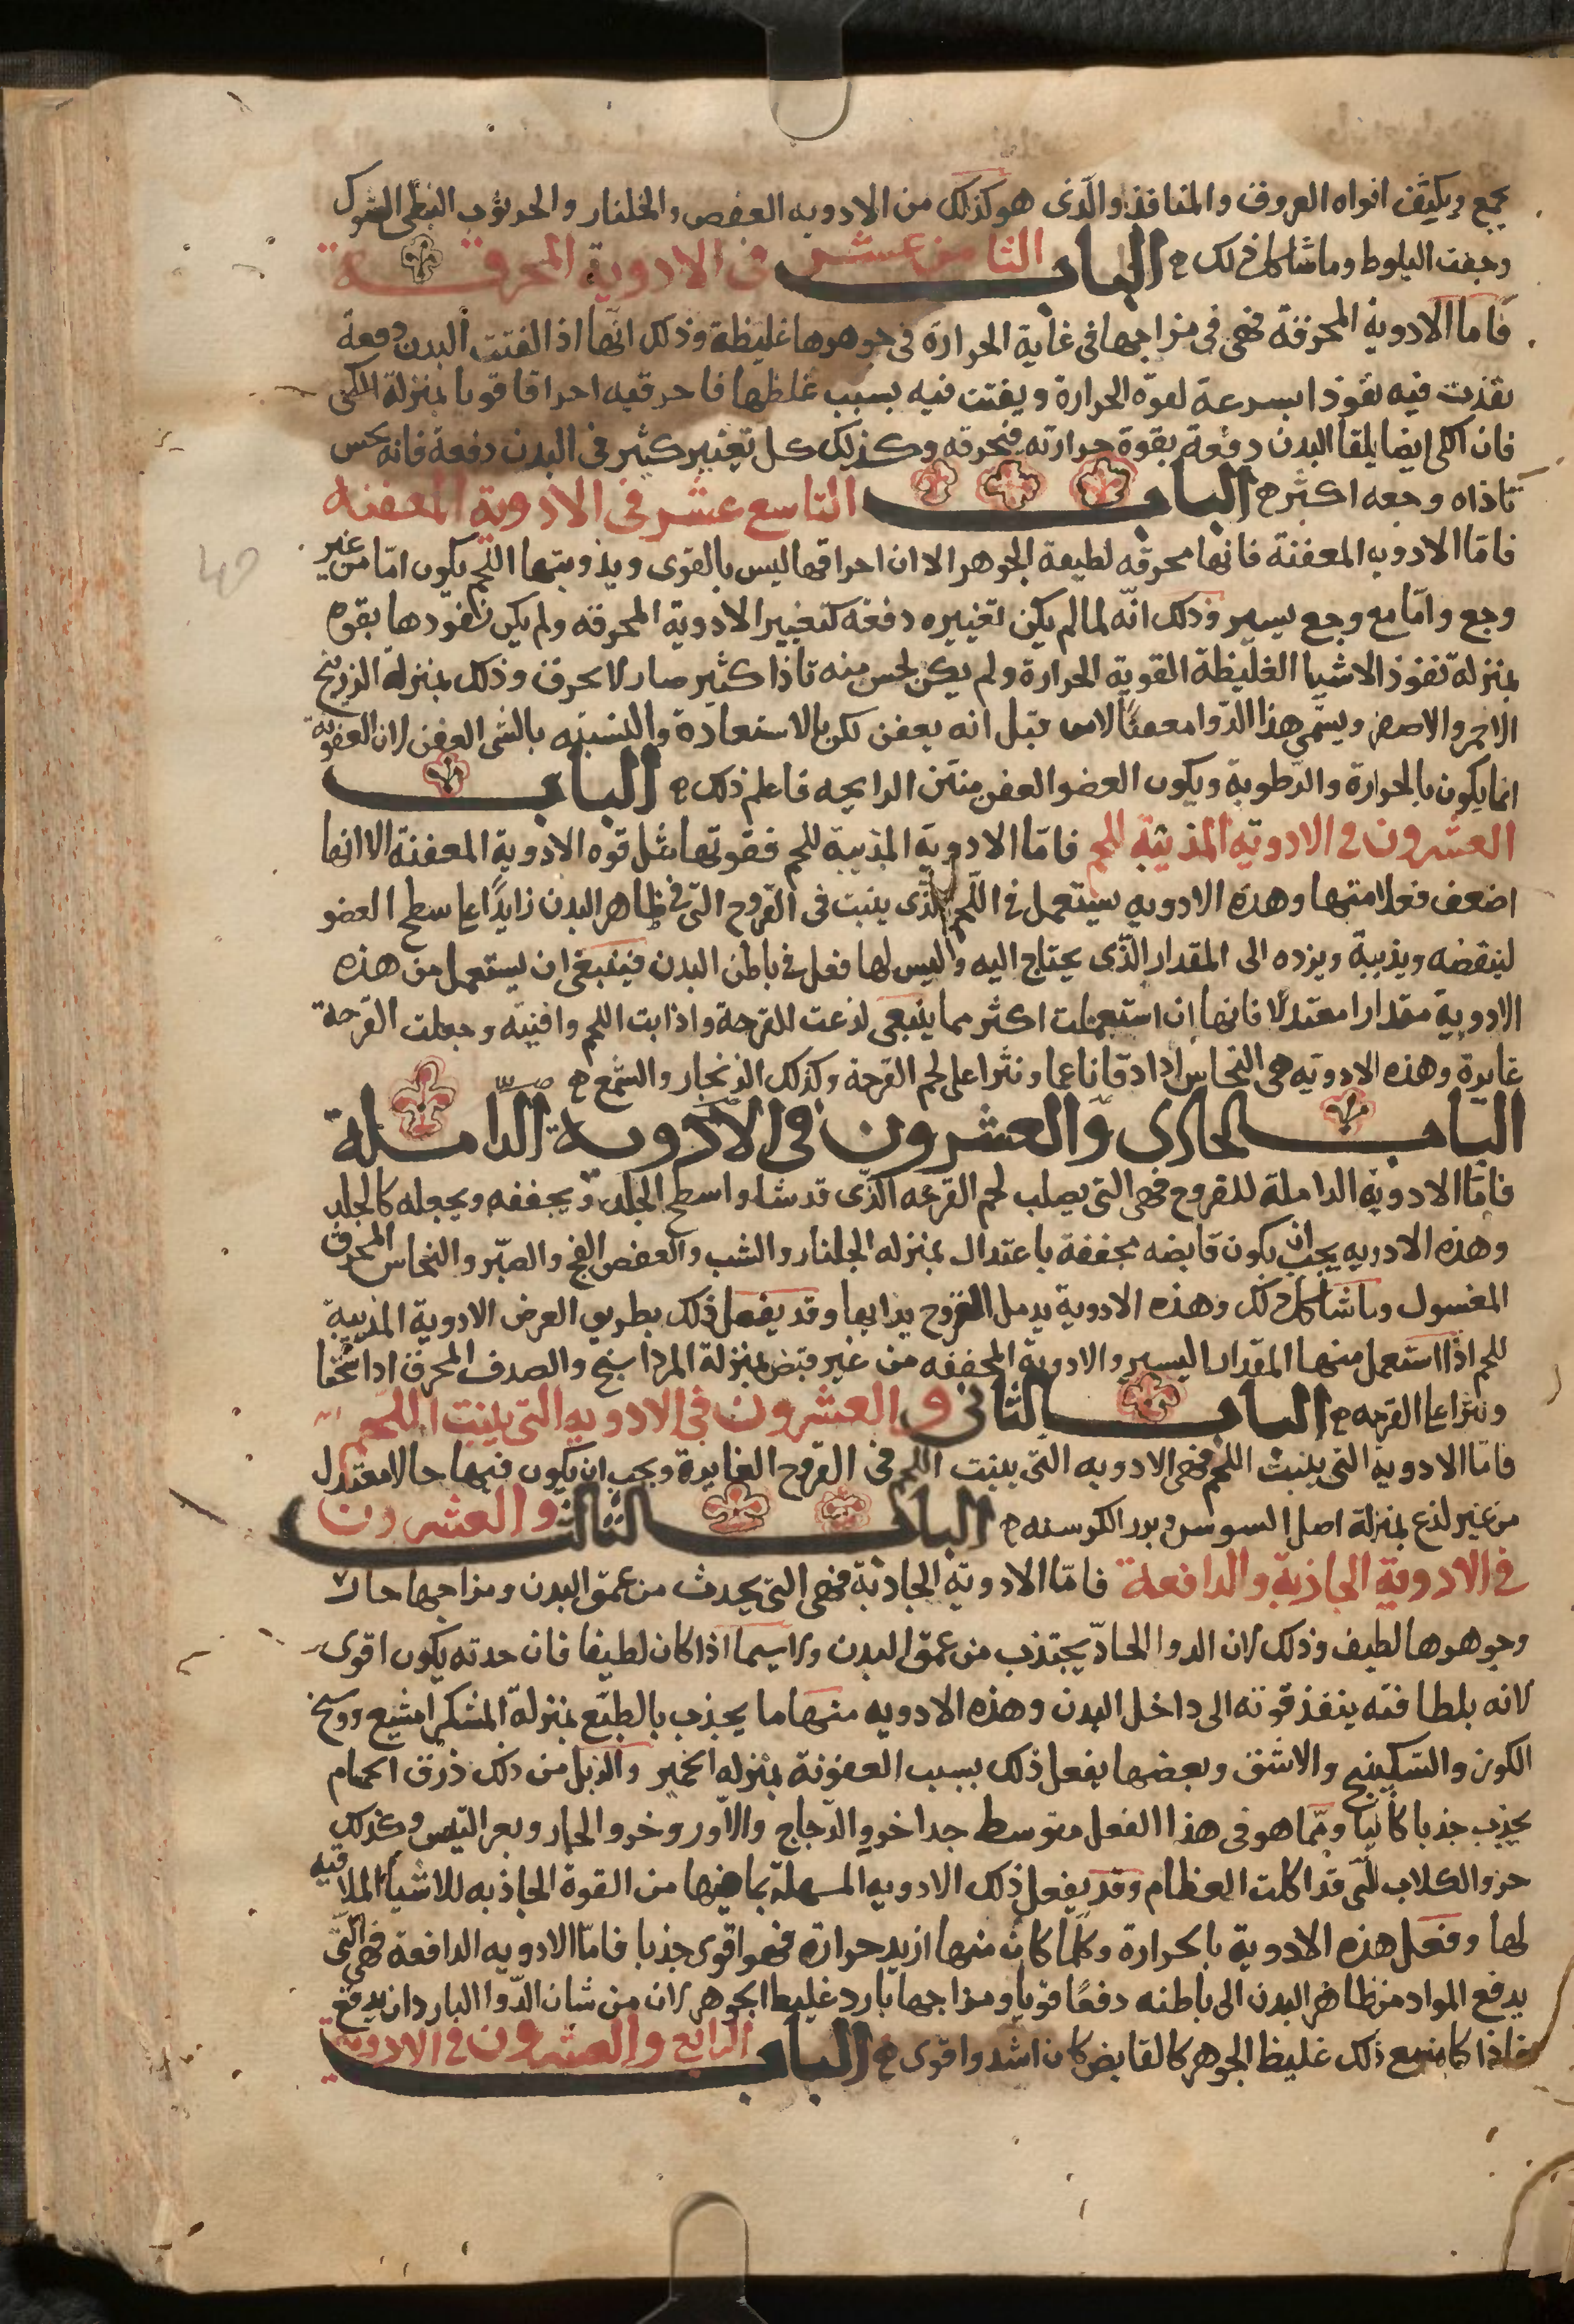 يجمع ويكثف افواه العروق والمنافذ والذى هو كذلك من الادويه العفص والجلنار والخرنوب النبطى الشوك
وجفت البلوط وما شاكل ذلك ه الباب الثامن عشر فى الادوية المحرقة
فاما الادوية المحرقة فهى فى مزاجها فى غاية الحرارة فى جوهرها غليظة وذلك انها اذا لقيت البدن دفعة
نفذت فيه نفوذا بسرعة لقوة الحرارة ويفتت فيه بسبب غلظها فاحرقته احراقا قويا بمنزلة الكى
فان الكى ايضا يلقا البدن دفعة بقوة حرارته فيحرقه وكذلك كل تغيير كثير فى البدن دفعة فانه يحس
تاذاه وجعه اكثر ه الباب التاسع عشر فى الادوية المعفنه
فامّا الادويه المعفنة فانها محرقه لطيفة الجوهر الا ان احراقها ليس بالقوى ويذوبتها اللحم يكون امّا من غير
وجع وامّا مع وجع يسير وذلك انّه لما لم يكن تغييره دفعة كتغيير الادوية المحرقه ولم يكن نفوذها بقوه
بمنزلة تفوذ الاشيا الغليظة القوية الحرارة ولم يكن يحس منه تاذا كثير صار لا يحرق وذلك بمنزلة الزرنيخ
الاحمر والاصفر ويسمّى هذا الدّوا معفنًا لا من قبل انه يعفن لكن بالاستعارة والنسبه بالشى العفن لان العفونة
انما يكون بالحرارة والرّطوبة ويكون العضو العفن منتن الرايحه فاعلم ذلك ه الباب
العشرون فى الادويه المذيبة للحم فامّا الادوية المذيبة للحم فقوتها مثل قوه الادوية المعفنة الا انها
اضعف فعلا منها وهذه الادويه يستعمل فى اللّحم الذّى ينبت فى القروح التّى فى ظاهر البدن زايدًا على سطح العضو
لينقضه ويذيبة ويرده الى المقدار الذّى يحتاج اليه وليس لها فعل فى باطن البدن فينبغى ان يستعمل من هذه
الادوية مقدارا معتدلًا فانها ان استعملت اكثر مما ينبغى لذعت للقرحة واذابت اللحم وافنيته وجعلت القرحة
غايرة وهذه الادويه هى النحاس اذا دق ناعما ونثر على لحم القرحة وكذلك الزنجار والشمع ه
الباب الحادى والعشرون فى الادوية الداملة
فامّا الادوية الداملة للقروح فهى التى يصلب لحم القرحه الذّى قد ساوا سطح الجلد ويجففه ويجعله كالجلد
وهذه الادويه يجب ان يكون قابضه مجففة باعتدال بمنزله الجلنار والشب والعفص الفج والصبّر والنحاس المحرق
المغسول وما شاكل ذلك وهذه الادوية يدمل القروح بذاتها وقد يفعل ذلك بطريق العرض الادوية المذيبة
للحم اذا استعمل منها المقدار اليسير والادوية المجففه من غير قبض بمنزلة المرداسنج والصدف المحرق اذا سحقا
ونثرا على القرحه ه الباب الثانى والعشرون فى الادويه التى ينبت اللحم
فامّا الادوية التى ينبت اللحم فهى الادويه التى ينبت اللحم فى القروح الغايرة ويجب ان يكون فيها جلا معتدل
من غير لذع بمنزلة اصل السوسن وبزر الكرسنه ه الباب الثالث والعشرون
فى الادوية الجاذبة والدافعة فامّا الادوية الجاذبة فهى التى يجذب من عمق البدن ومزاجها حار
وجوهرها لطيف وذلك لان الدوا الحادّ يجتذب من عمق البدن ولا سيما اذا كان لطيفا فان حدته يكون اقوى
لانه بلطافته ينفذ قوته الى داخل البدن وهذه الادويه منها ما يجذب بالطبّع بمنزلة المشكرامشيع ووسخ
الكور والسّكبينج والاشق وبعضها يفعل ذلك بسبب العفونة بمنزله الخمير والزبل من ذلك ذرق الحمام
يجذب جذبا كافيا وممّا هو فى هذا الفعل متوسط جدا خرو الدّجاج والاوز وخرو الحمار وبعر التيس وكذلك
خرو الكلاب الّتى قد اكلت العظام وقد يفعل ذلك الادويه المسهلة بما فيها من القوة الجاذبه للاشيا الملاقيه
لها وفعل هذه الادوية بالحرارة وكلما كان منها ازيد حرارة فهو اقوى جذبا فامّا الادويه الدافعة فهى الّتى
يدفع المواد من ظاهر البدن الى باطنه دفعًا قويا ومزاجها بارد غليظ الجوهر لان من شان الدّوا البارد ان يدفع
فاذا كان مع ذلك غليظ الجوهر كالقابض كان اشد واقوى ه الباب الرابع والعشرون فى الادوية